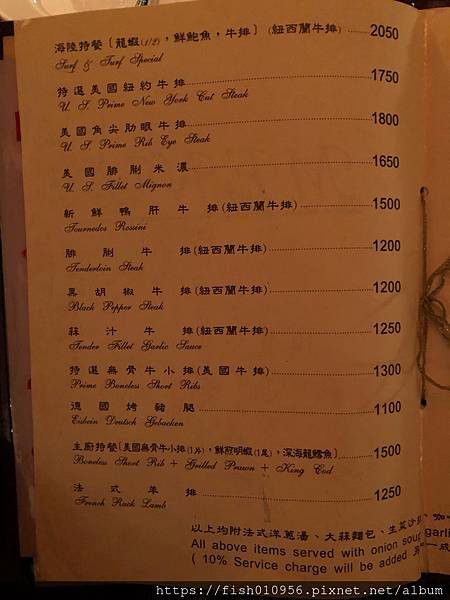 海陸特餐〔龍蝦(1/2)，鮮鮑魚，牛排〕 (紐西蘭牛排) 2050
Surf & Turf Special
特選美國紐約牛排 1750
U. S. Prime New York Cut Steak
美國角尖肋眼牛排 1800
U. S. Prime Rib Eye Steak
美國腓脷米濃 1650
U. S. Fillet Mignon
新鮮鴨肝牛排(紐西蘭牛排) 1500
Tournedos Rossini
腓脷牛排(紐西蘭牛排) 1200
Tenderloin Steak
黑胡椒牛排(紐西蘭牛排) 1200
Black Pepper Steak
蒜汁牛排(紐西蘭牛排) 1250
Tender Fillet Garlic Sauce
特選無骨牛小排(美國牛排) 1300
Prime Boneless Short Ribs
德國烤豬腿 1100
Eisbein Deutsch Gebacken
主廚特餐〔美國無骨牛小排(1片)，鮮煎明蝦(1尾)，深海龍鱈魚〕 1500
Boneless Short Rib + Grilled Prawn + King Cod
法式羊排 1250
French Rack Lamb
以上均附法式洋蔥湯、大蒜麵包、生菜沙拉、咖
All above items served with onion soup garli
( 10% Service charge will be added 另 一成
https://fish010956.pixnet.net/album